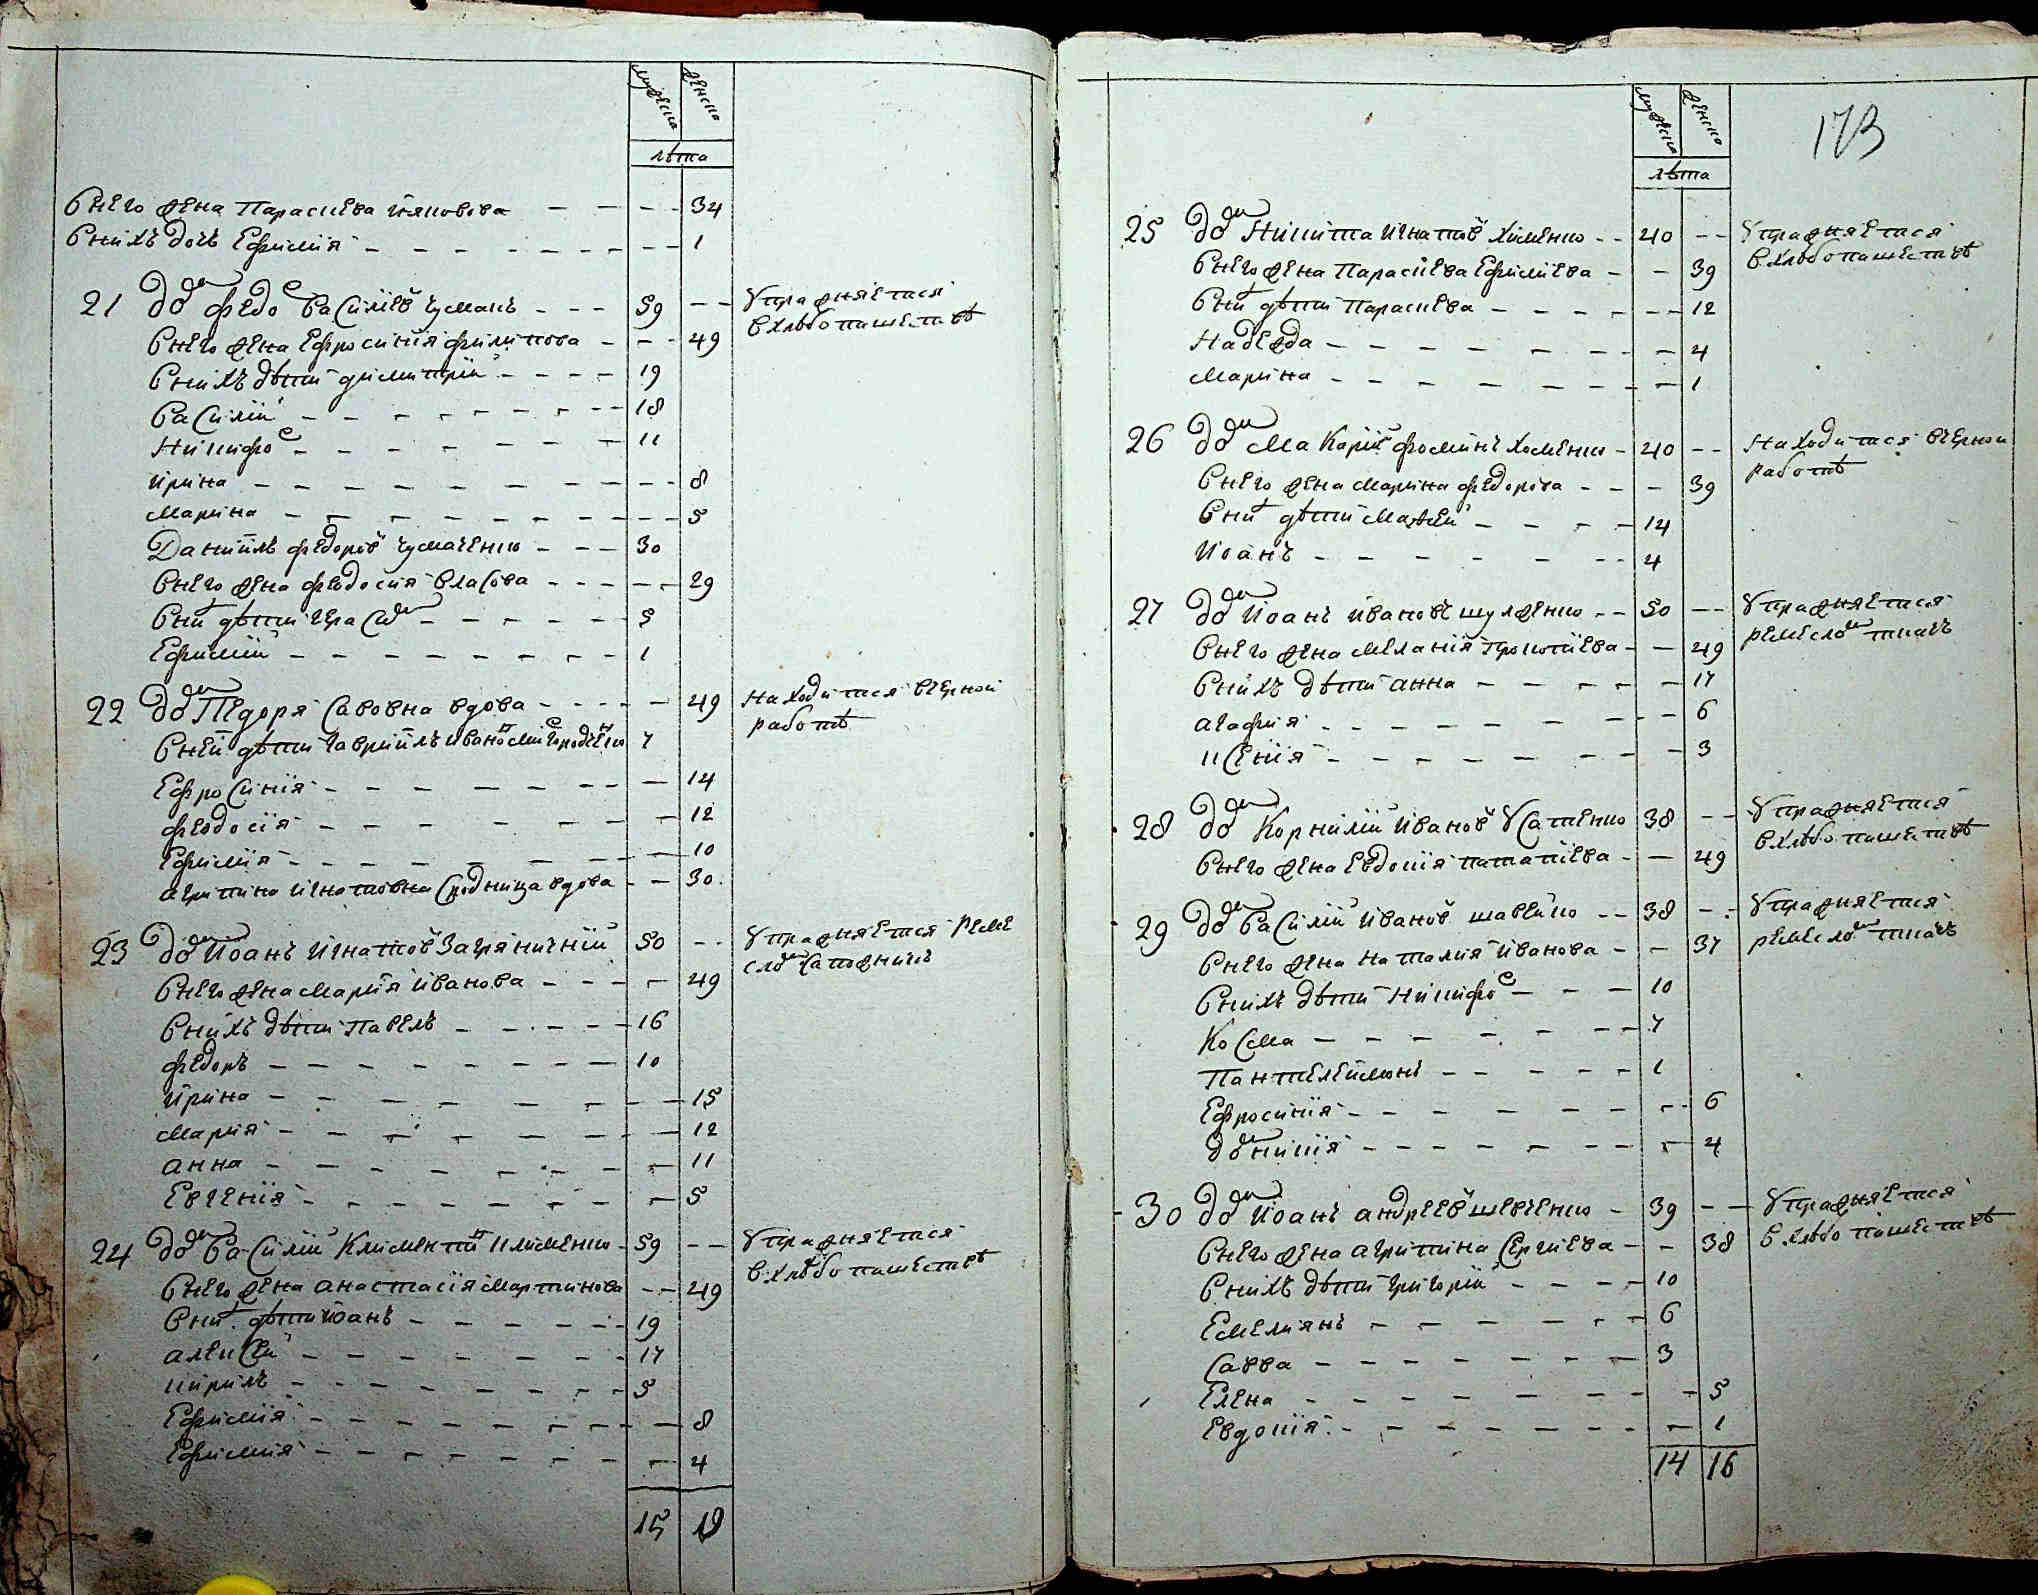 мужеска женска
лѣта
Внего жена Параскева Яковова 34
Внихъ дочь Ефимия 1
21 Дом Федор Василіев Чумакъ 59 Упражняется
в хлѣбопашествѣ
Внего жена Ефросинія Филипова 49
Внихъ дѣти Димитрій 19
Василій 18
Никифор 11
Ирина 8
Марина 5
Даніилъ Федоров Чумаченко 30
Внего жена Феодосия Власова 29
Вних дѣти Герасим 5
Ефимій 1
22 Дом Педоря Савовна вдова 49 находится вчерной
работѣ
Вней дѣти Гавріилъ Иванов 7
Ефросинія 14
Феодосія 12
Ефимія 10
Агрипина Игнатовна сродница вдова 30
23 Дом Иоанъ Игнатов Загряничній 50 Упражняется реме
слом сапожничь
Внего жена Мария Иванова 49
Внихъ дѣти Павелъ 16
Федоръ 10
Ирина 15
Мария 12
Анна 11
Евгения 5
24 Дом Василій Климентіи Клименко 59 Упражняется
в хлѣбопашествѣ
Внего жена Анастасія Мартинова 49
Вних дѣти Иоанъ 19
Алексей 17
Кирилъ 5
Ефимия 8
Ефимия 4
15 19
173
мужеска женска
лѣта
25 Дом Никита Игнатов Хименко 40 Упражняется
в хлѣбопашествѣ
Внего жена Параскева Ефимиева 39
Вних дѣти Параскева 12
Надежда 4
Марина 1
26 Дом Макарій Фоминъ Хоменко 40 находится вчерной
работѣ
Внего жена Марина Федорова 39
Вних дѣти Матѳей 14
Иоанъ 4
27 Дом Иоанъ Иванов Шулженко 50 Упражняется
ремеслом ткачь
Внего жена Меланія Прокопиева 49
Внихъ дѣти Анна 17
Агафия 6
Ксенія 3
28 Дом Корнилій Иванов Усатенко 38 Упражняется
в хлѣбопашествѣ
Внего жена Евдокія Патапиева 49
29 Дом Василій Иванов Шавейко 38 Упражняется
ремеслом ткачь
Внего жена Наталия Иванова 37
Внихъ дѣти Никифор 10
Косма 7
Пантелеймонъ 1
Ефросинія 6
Домникія 4
30 Дом Иоанъ Андреев Шевченко 39 Упражняется
в хлѣбопашествѣ
Внего жена Агрипина Сергиева 38
Внихъ дѣти Григорій 10
Емелиянъ 6
Савва 3
Елена 5
Евдокия 1
14 16